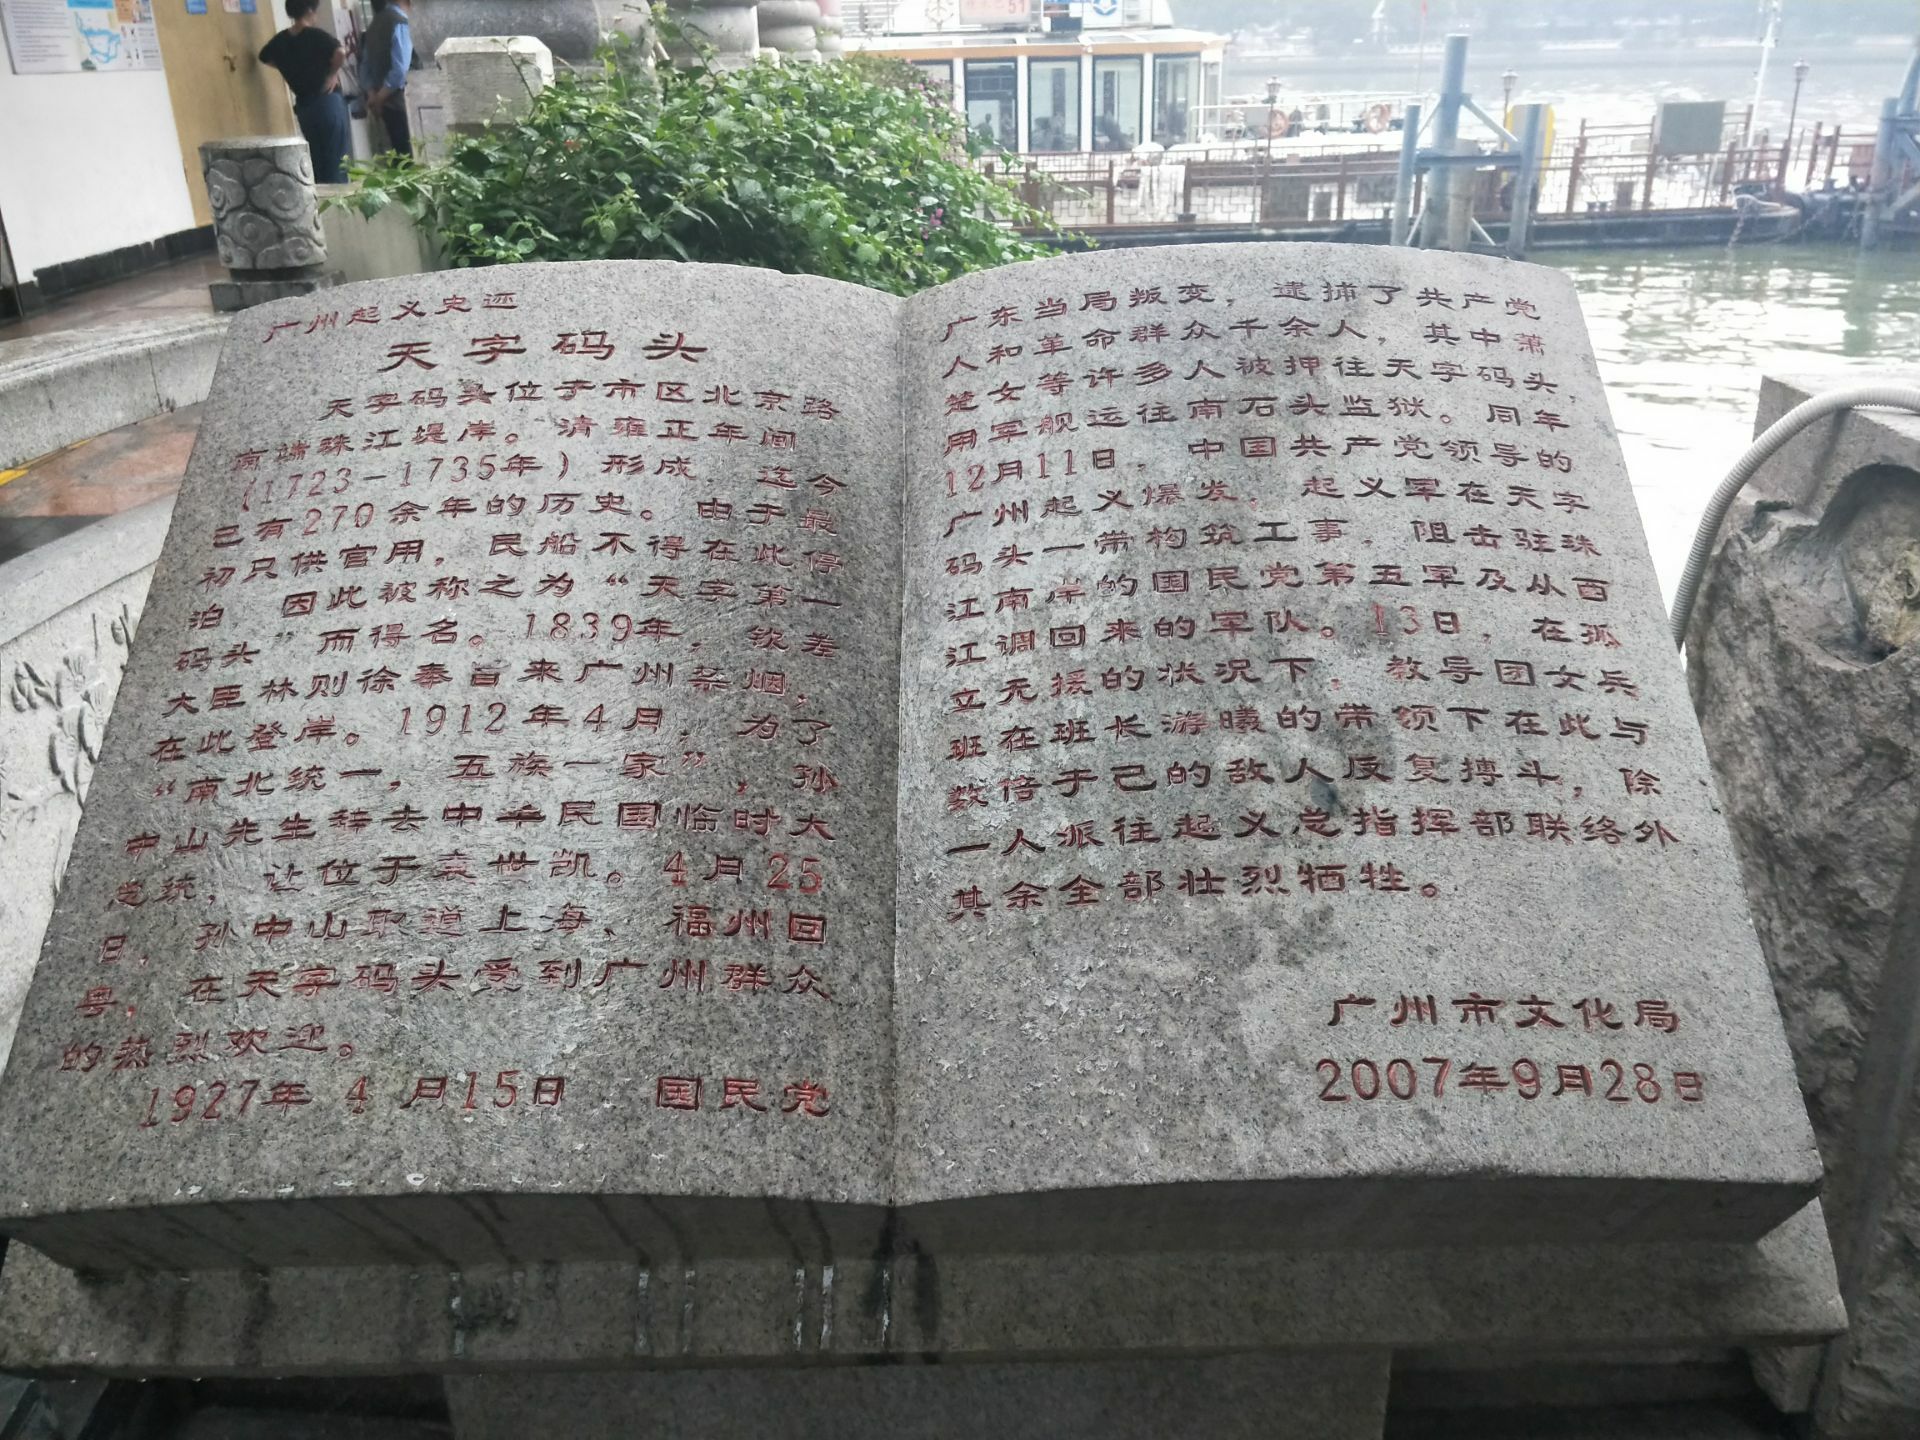 广州起义史迹
天字码头
天字码头位于市区北京路
南端珠江堤岸。清雍正年间
（1723-1735年）形成，迄今
已有270余年的历史。由于最
初只供官用，民船不得在此停
泊 因此被称之为“天字第一
码头”而得名。1839年，钦差
大臣林则徐奉旨来广州禁烟，
在此登岸。1912年4月，为了
“南北统一，五族一家”，孙
中山先生辞去中华民国临时大
总统，让位于袁世凯。4月25
日，孙中山取道上海、福州回
粤，在天字码头受到广州群众
的热烈欢迎。
1927年4月15日 国民党
广东当局叛变，逮捕了共产党
人和革命群众千余人，其中萧
楚女等许多人被押往天字码头，
用军舰运往南石头监狱。同年
12月11日，中国共产党领导的
广州起义爆发，起义军在天字
码头一带构筑工事，阻击驻珠
江南岸的国民党第五军及从西
江调回来的军队。13日，在孤
立无援的状况下，教导团女兵
班在班长游曦的带领下在此与
数倍于己的敌人反复搏斗，除
一人派往起义总指挥部联络外
其余全部壮烈牺牲。
广州市文化局
2007年9月28日